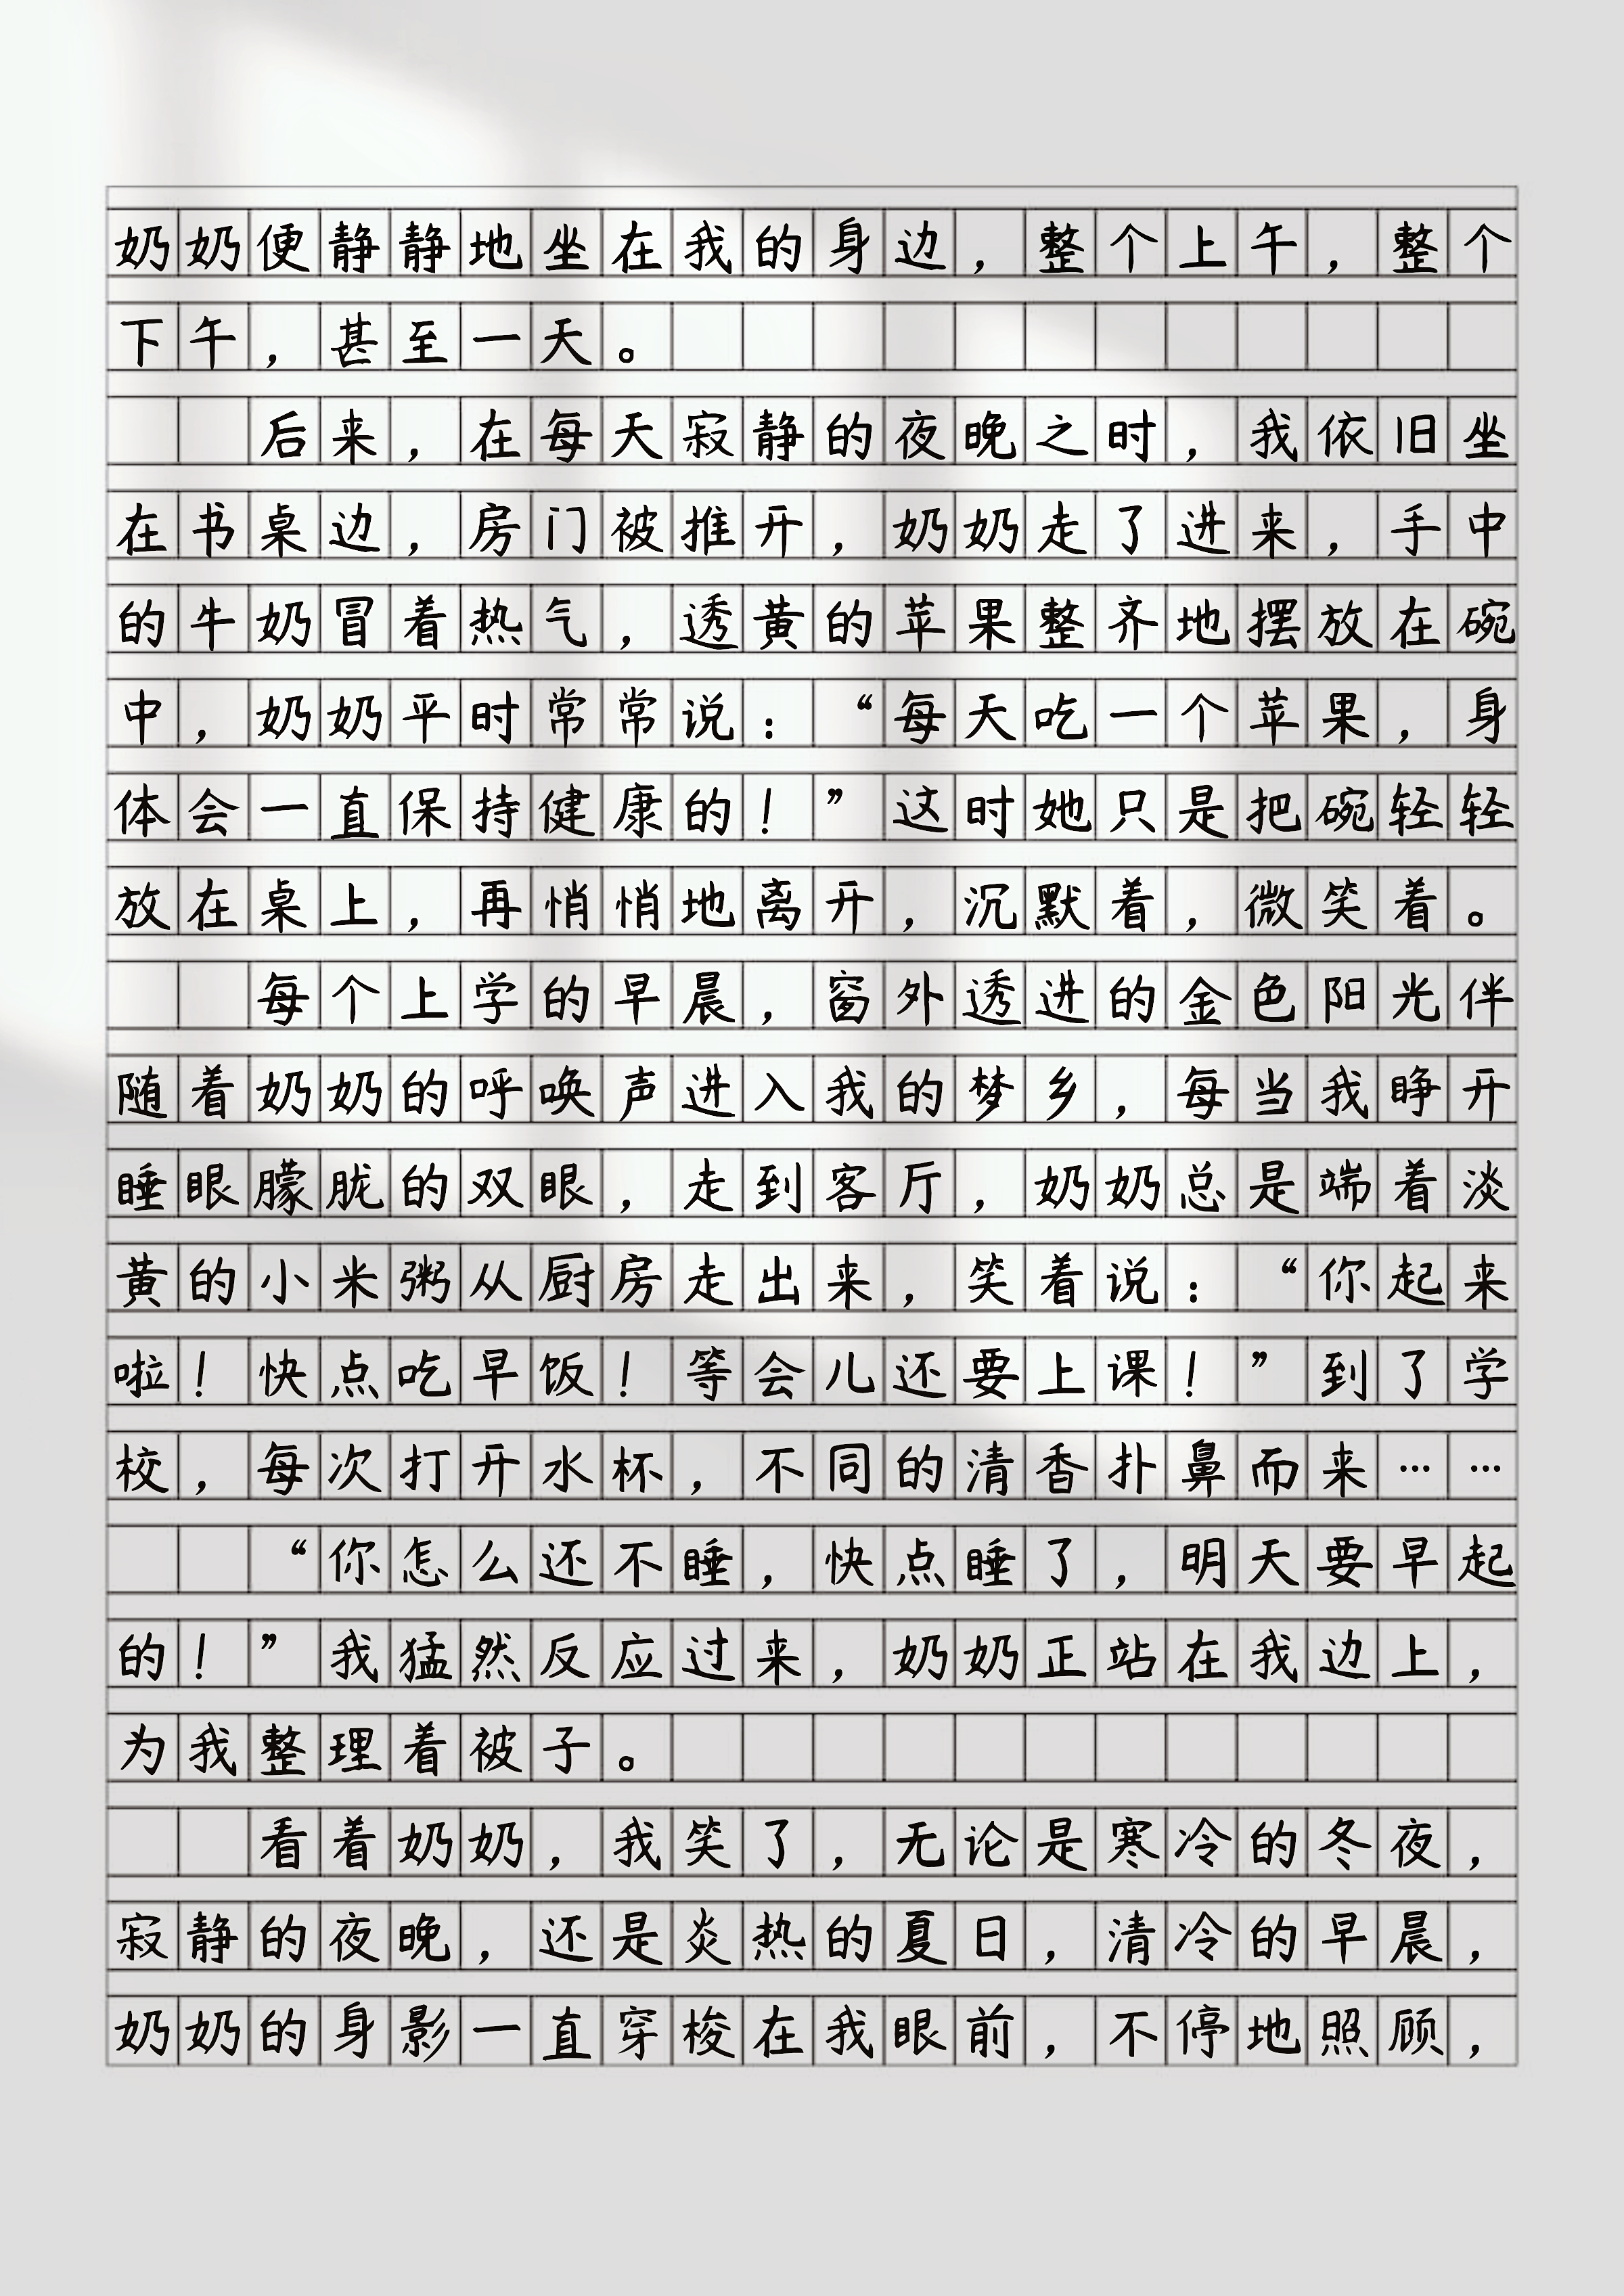 奶奶便静静地坐在我的身边，整个上午，整个
下午，甚至一天。
后来，在每天寂静的夜晚之时，我依旧坐
在书桌边，房门被推开，奶奶走了进来，手中
的牛奶冒着热气，透黄的苹果整齐地摆放在碗
中，奶奶平时常常说：“每天吃一个苹果，身
体会一直保持健康的！”这时她只是把碗轻轻
放在桌上，再悄悄地离开，沉默着，微笑着。
每个上学的早晨，窗外透进的金色阳光伴
随着奶奶的呼唤声进入我的梦乡，每当我睁开
睡眼朦胧的双眼，走到客厅，奶奶总是端着淡
黄的小米粥从厨房走出来，笑着说：“你起来
啦！快点吃早饭！等会儿还要上课！”到了学
校，每次打开水杯，不同的清香扑鼻而来……
“你怎么还不睡，快点睡了，明天要早起
的！”我猛然反应过来，奶奶正站在我边上，
为我整理着被子。
看着奶奶，我笑了，无论是寒冷的冬夜，
寂静的夜晚，还是炎热的夏日，清冷的早晨，
奶奶的身影一直穿梭在我眼前，不停地照顾，